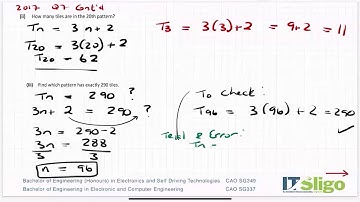 2017 Q7 Cont'd
(ii) How many tiles are in the 20th pattern?
Tn = 3n + 2
T20 = 3(20) + 2
T20 = 62
T3 = 3(3) + 2 = 9 + 2 = 11
(iii) Find which pattern has exactly 290 tiles.
Tn = 290 ?
3n + 2 = 290 ?
3n = 290 - 2
3n = 288
3 3
n = 96
To Check:
T96 = 3(96) + 2 = 290
✓
Trial & Error:
Tn =
IT Sligo
Bachelor of Engineering (Honours) in Electronics and Self Driving Technologies CAO SG349
Bachelor of Engineering in Electronic and Computer Engineering CAO SG337